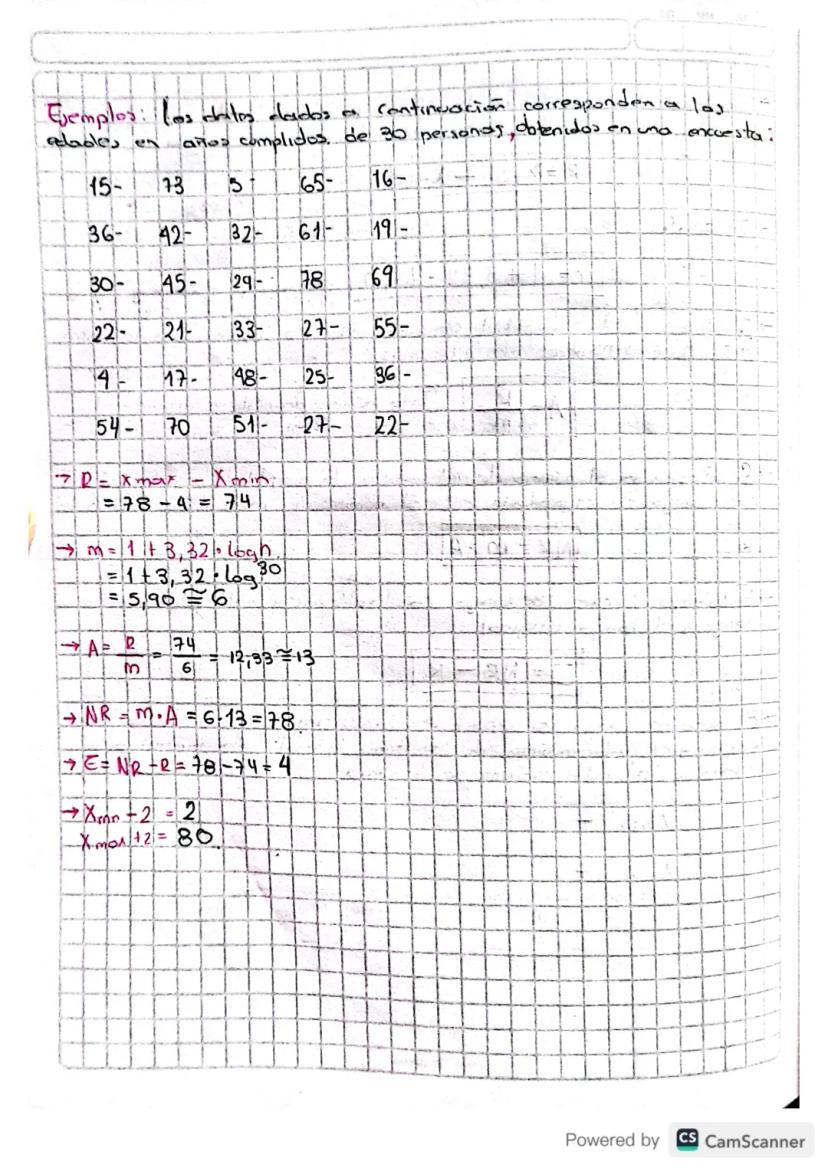 Ejemplos: Los datos dados a continuación corresponden a las
edades en años cumplidos de 30 personas, obtenidos en una encuesta:
15- 73 5- 65- 16-
36- 42- 32- 61- 19-
30- 45- 29- 78 69
22- 21- 33- 27- 55-
4- 17- 48- 25- 36-
54- 70 51- 27- 22-
→ R = Xmax - Xmin
= 78 - 4 = 74
→ m = 1 + 3,32 • log n
= 1 + 3,32 • log 30
= 5,90 ≅ 6
→ A = R/m = 74/6 = 12,33 ≅ 13
→ NR = m • A = 6 • 13 = 78
→ E = NR - R = 78 - 74 = 4
→ Xmin - 2 = 2
Xmax + 2 = 80
Powered by CS CamScanner